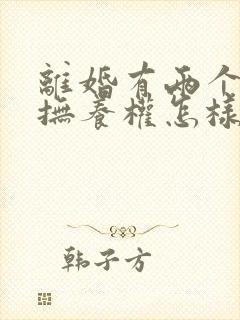 離婚有兩个
撫養權怎樣
韩子方